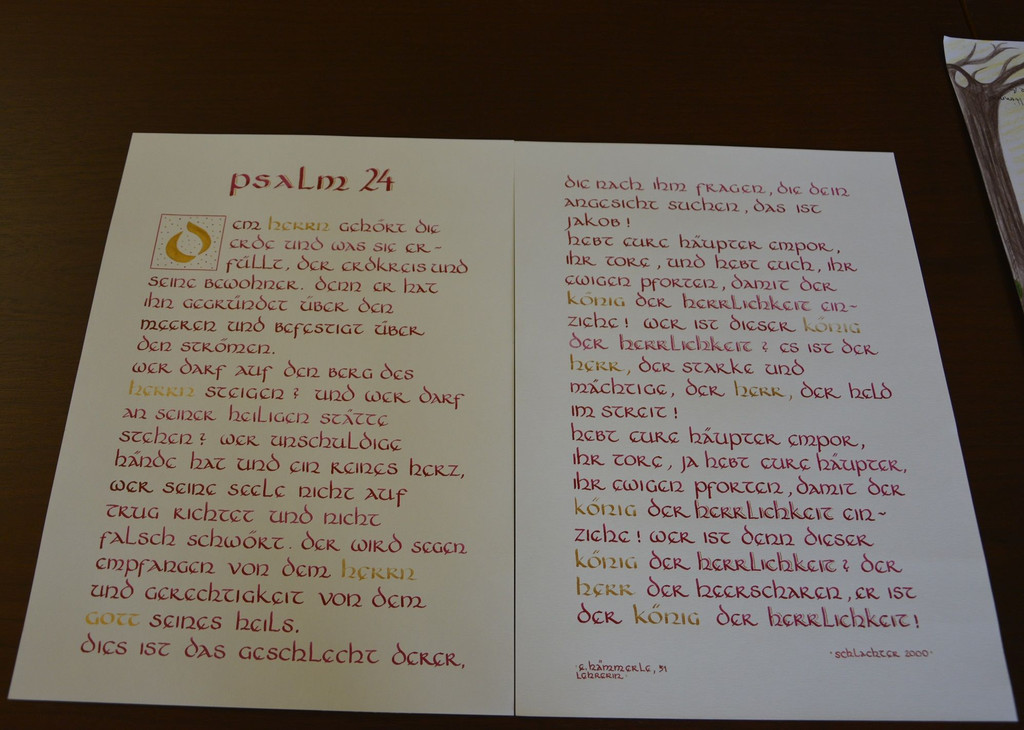 psalm 24
Dem Herrn gehört die
Erde und was sie er-
füllt, der Erdkreis und
seine Bewohner. Denn er hat
ihn gegründet über den
Meeren und befestigt über
den Strömen.
Wer darf auf den Berg des
Herrn steigen? Und wer darf
an seiner heiligen Stätte
stehen? Wer unschuldige
Hände hat und ein reines Herz,
wer seine Seele nicht auf
Trug richtet und nicht
falsch schwört. Der wird Segen
empfangen von dem Herrn
und Gerechtigkeit von dem
Gott seines Heils.
Dies ist das Geschlecht derer,
die nach ihm fragen, die dein
Angesicht suchen, das ist
Jakob!
Hebt eure Häupter empor,
ihr Tore, und hebt euch, ihr
ewigen Pforten, damit der
König der Herrlichkeit ein-
ziehe! Wer ist dieser König
der Herrlichkeit? Es ist der
Herr, der Starke und
Mächtige, der Herr, der Held
im Streit!
Hebt eure Häupter empor,
ihr Tore, ja hebt eure Häupter,
ihr ewigen Pforten, damit der
König der Herrlichkeit ein-
ziehe! Wer ist denn dieser
König der Herrlichkeit? Der
Herr der Heerscharen, er ist
der König der Herrlichkeit!
·Schlachter 2000·
·E. Hämmerle, 91
Lehrerin·